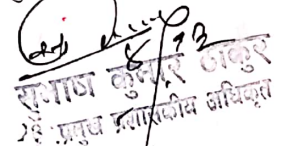 ८/१२
सुभाष कुमार ठाकुर
प्रमुख प्रशासकीय अधिकृत